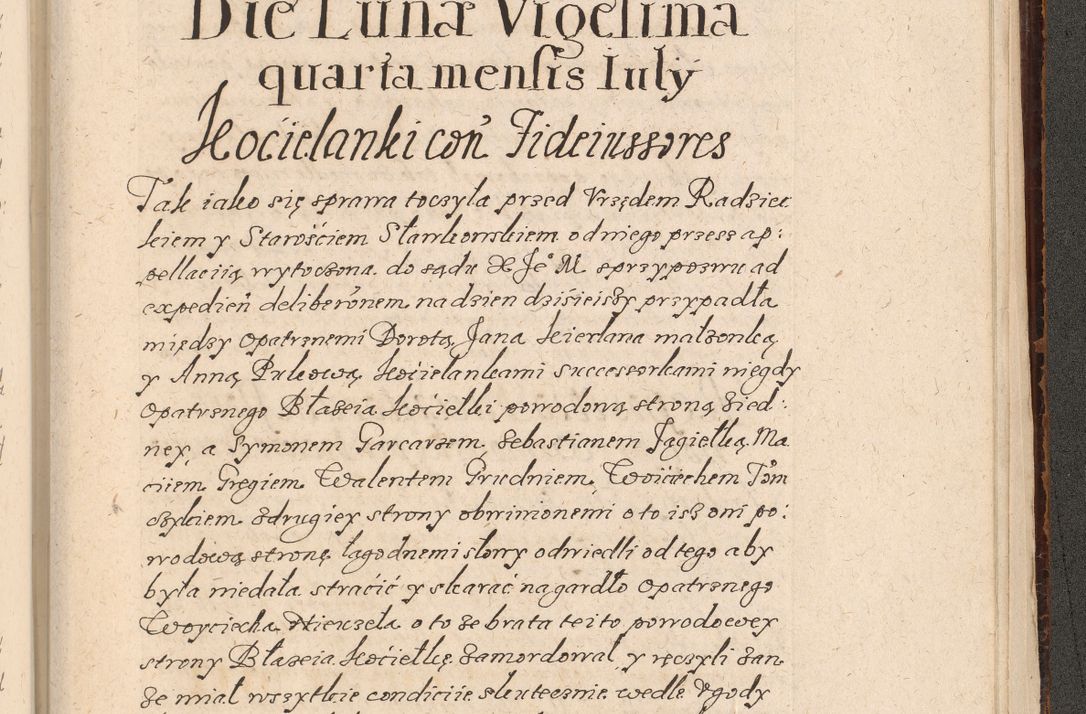 Die Lunæ Vigesima
quarta mensis Iuly
Kocielanki con Fideiussores
Tak iako się sprawa toczyła przed Vrzędem Radziec
kiem y Starościem Sławkowskiem od niego przesz ap:
pellaciią wytoczona do sądu X Je° M sprzypozwu ad
expedień deliberōnem na dzien dzisieiszy przypadła
między Opatrznemi Dorotą Jana Kierlana małżonką
y Anną Pulcową Kocielankami successorkami niegdy
Opatrznego Błażeia Kociełki powodową stroną zied:
ney, a Szymonem Garcarzem, Sebastianem Jagiełką, Ma
ciiem Gręgiem Walentem Grudniem, Woićiechem Tom
czykiem zdrugiey strony obwinionemi o to isz oni po:
wodową stronę łagodnemi słowy odwiedli od tego aby
była niedała stracić y skarać na gardło Opatrznego
Woyciecha Nieuzela o to że brata teito powodowey
strony Błażeia Kociełkę zamordował, y ręczyli zan
że miał wszytkie condiciie skutecznie wedle Vgody